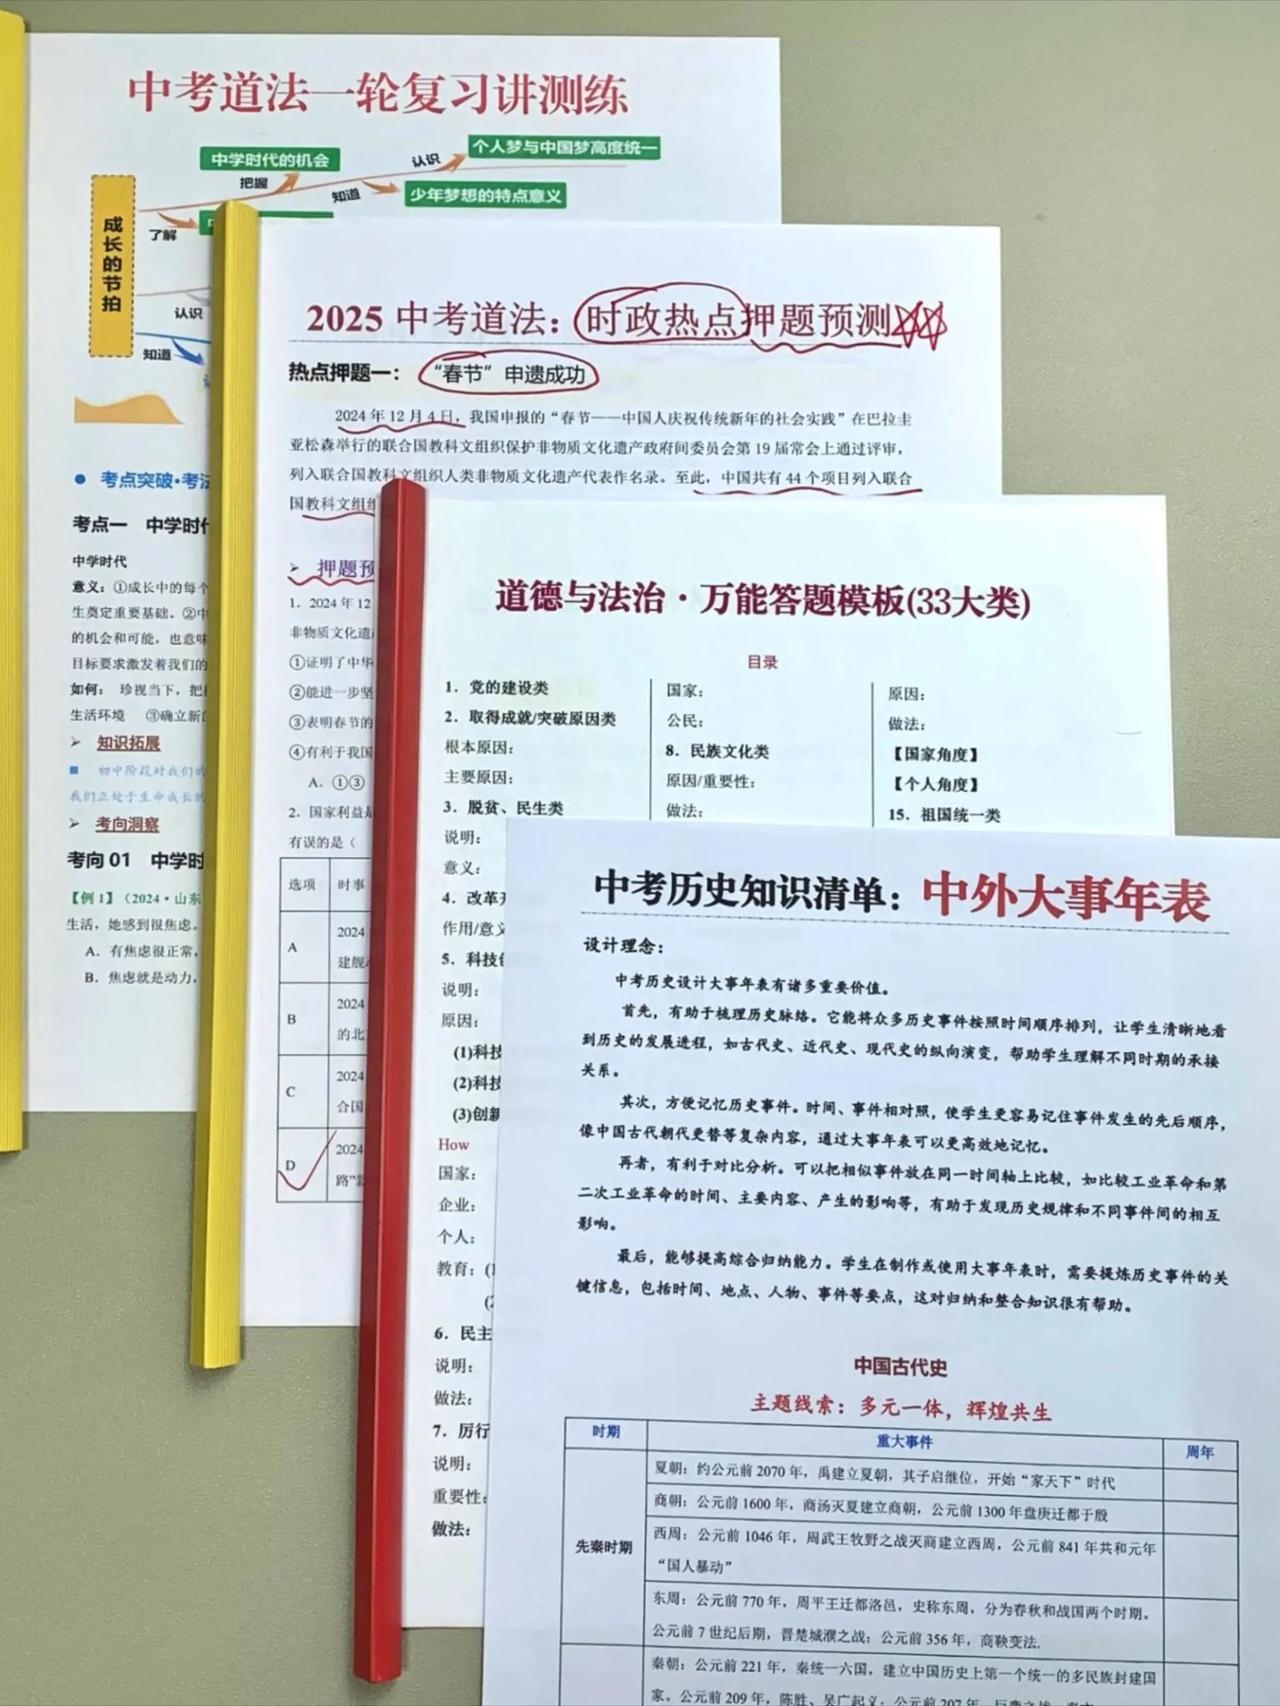 中考道法一轮复习讲测练
中学时代的机会
认识
个人梦与中国梦高度统一
把握
知道
少年梦想的特点意义
了解
成长的节拍
认识
知道
考点突破·考法
考点一 中学时代
中学时代
意义：①成长中的每个
生奠定重要基础。②中
的机会和可能，也意味
目标要求激发着我们的
如何： 珍视当下，把
生活环境 ③确立新的
知识拓展
初中阶段对我们的
我们正处于生命成长的
考向洞察
考向 01 中学时
【例 1】（2024·山东
生活，她感到很焦虑。
A．有焦虑很正常，
B．焦虑就是动力，
2025 中考道法：时政热点押题预测
热点押题一： “春节”申遗成功
2024 年 12 月 4 日，我国申报的“春节——中国人庆祝传统新年的社会实践”在巴拉圭
亚松森举行的联合国教科文组织保护非物质文化遗产政府间委员会第 19 届常会上通过评审，
列入联合国教科文组织人类非物质文化遗产代表作名录。至此，中国共有 44 个项目列入联合
国教科文组织
押题预
1．2024 年 12
非物质文化遗
①证明了中华
②能进一步坚
③表明春节的
④有利于我国
A．①③
2．国家利益是
有误的是（
选项 时事
A 2024
建舰
B 2024
的北
C 2024
合国
D 2024
路”
道德与法治·万能答题模板(33大类)
目录
1．党的建设类
2．取得成就/突破原因类
根本原因：
主要原因：
3．脱贫、民生类
说明：
意义：
4．改革开
作用/意义
5．科技创
说明：
原因：
(1)科技
(2)科技
(3)创新
How
国家：
企业：
个人：
教育：(1
(2
6．民主
说明：
做法：
7．厉行
说明：
重要性：
做法：
国家：
公民：
8．民族文化类
原因/重要性：
做法：
原因：
做法：
【国家角度】
【个人角度】
15．祖国统一类
中考历史知识清单：中外大事年表
设计理念：
中考历史设计大事年表有诸多重要价值。
首先，有助于梳理历史脉络。它能将众多历史事件按照时间顺序排列，让学生清晰地看
到历史的发展进程，如古代史、近代史、现代史的纵向演变，帮助学生理解不同时期的承接
关系。
其次，方便记忆历史事件。时间、事件相对照，使学生更容易记住事件发生的先后顺序，
像中国古代朝代更替等复杂内容，通过大事年表可以更高效地记忆。
再者，有利于对比分析。可以把相似事件放在同一时间轴上比较，如比较工业革命和第
二次工业革命的时间、主要内容、产生的影响等，有助于发现历史规律和不同事件间的相互
影响。
最后，能够提高综合归纳能力。学生在制作或使用大事年表时，需要提炼历史事件的关
键信息，包括时间、地点、人物、事件等要点，这对归纳和整合知识很有帮助。
中国古代史
主题线索：多元一体，辉煌共生
时期 重大事件 周年
夏朝：约公元前 2070 年，禹建立夏朝，其子启继位，开始“家天下”时代
商朝：公元前 1600 年，商汤灭夏建立商朝，公元前 1300 年盘庚迁都于殷
先秦时期
西周：公元前 1046 年，周武王牧野之战灭商建立西周，公元前 841 年共和元年
“国人暴动”
东周：公元前 770 年，周平王迁都洛邑，史称东周，分为春秋和战国两个时期。
公元前 7 世纪后期，晋楚城濮之战；公元前 356 年，商鞅变法.
秦朝：公元前 221 年，秦统一六国，建立中国历史上第一个统一的多民族封建国
家。公元前 209 年，陈胜、吴广起义；公元前 207 年，巨鹿之战，秦亡